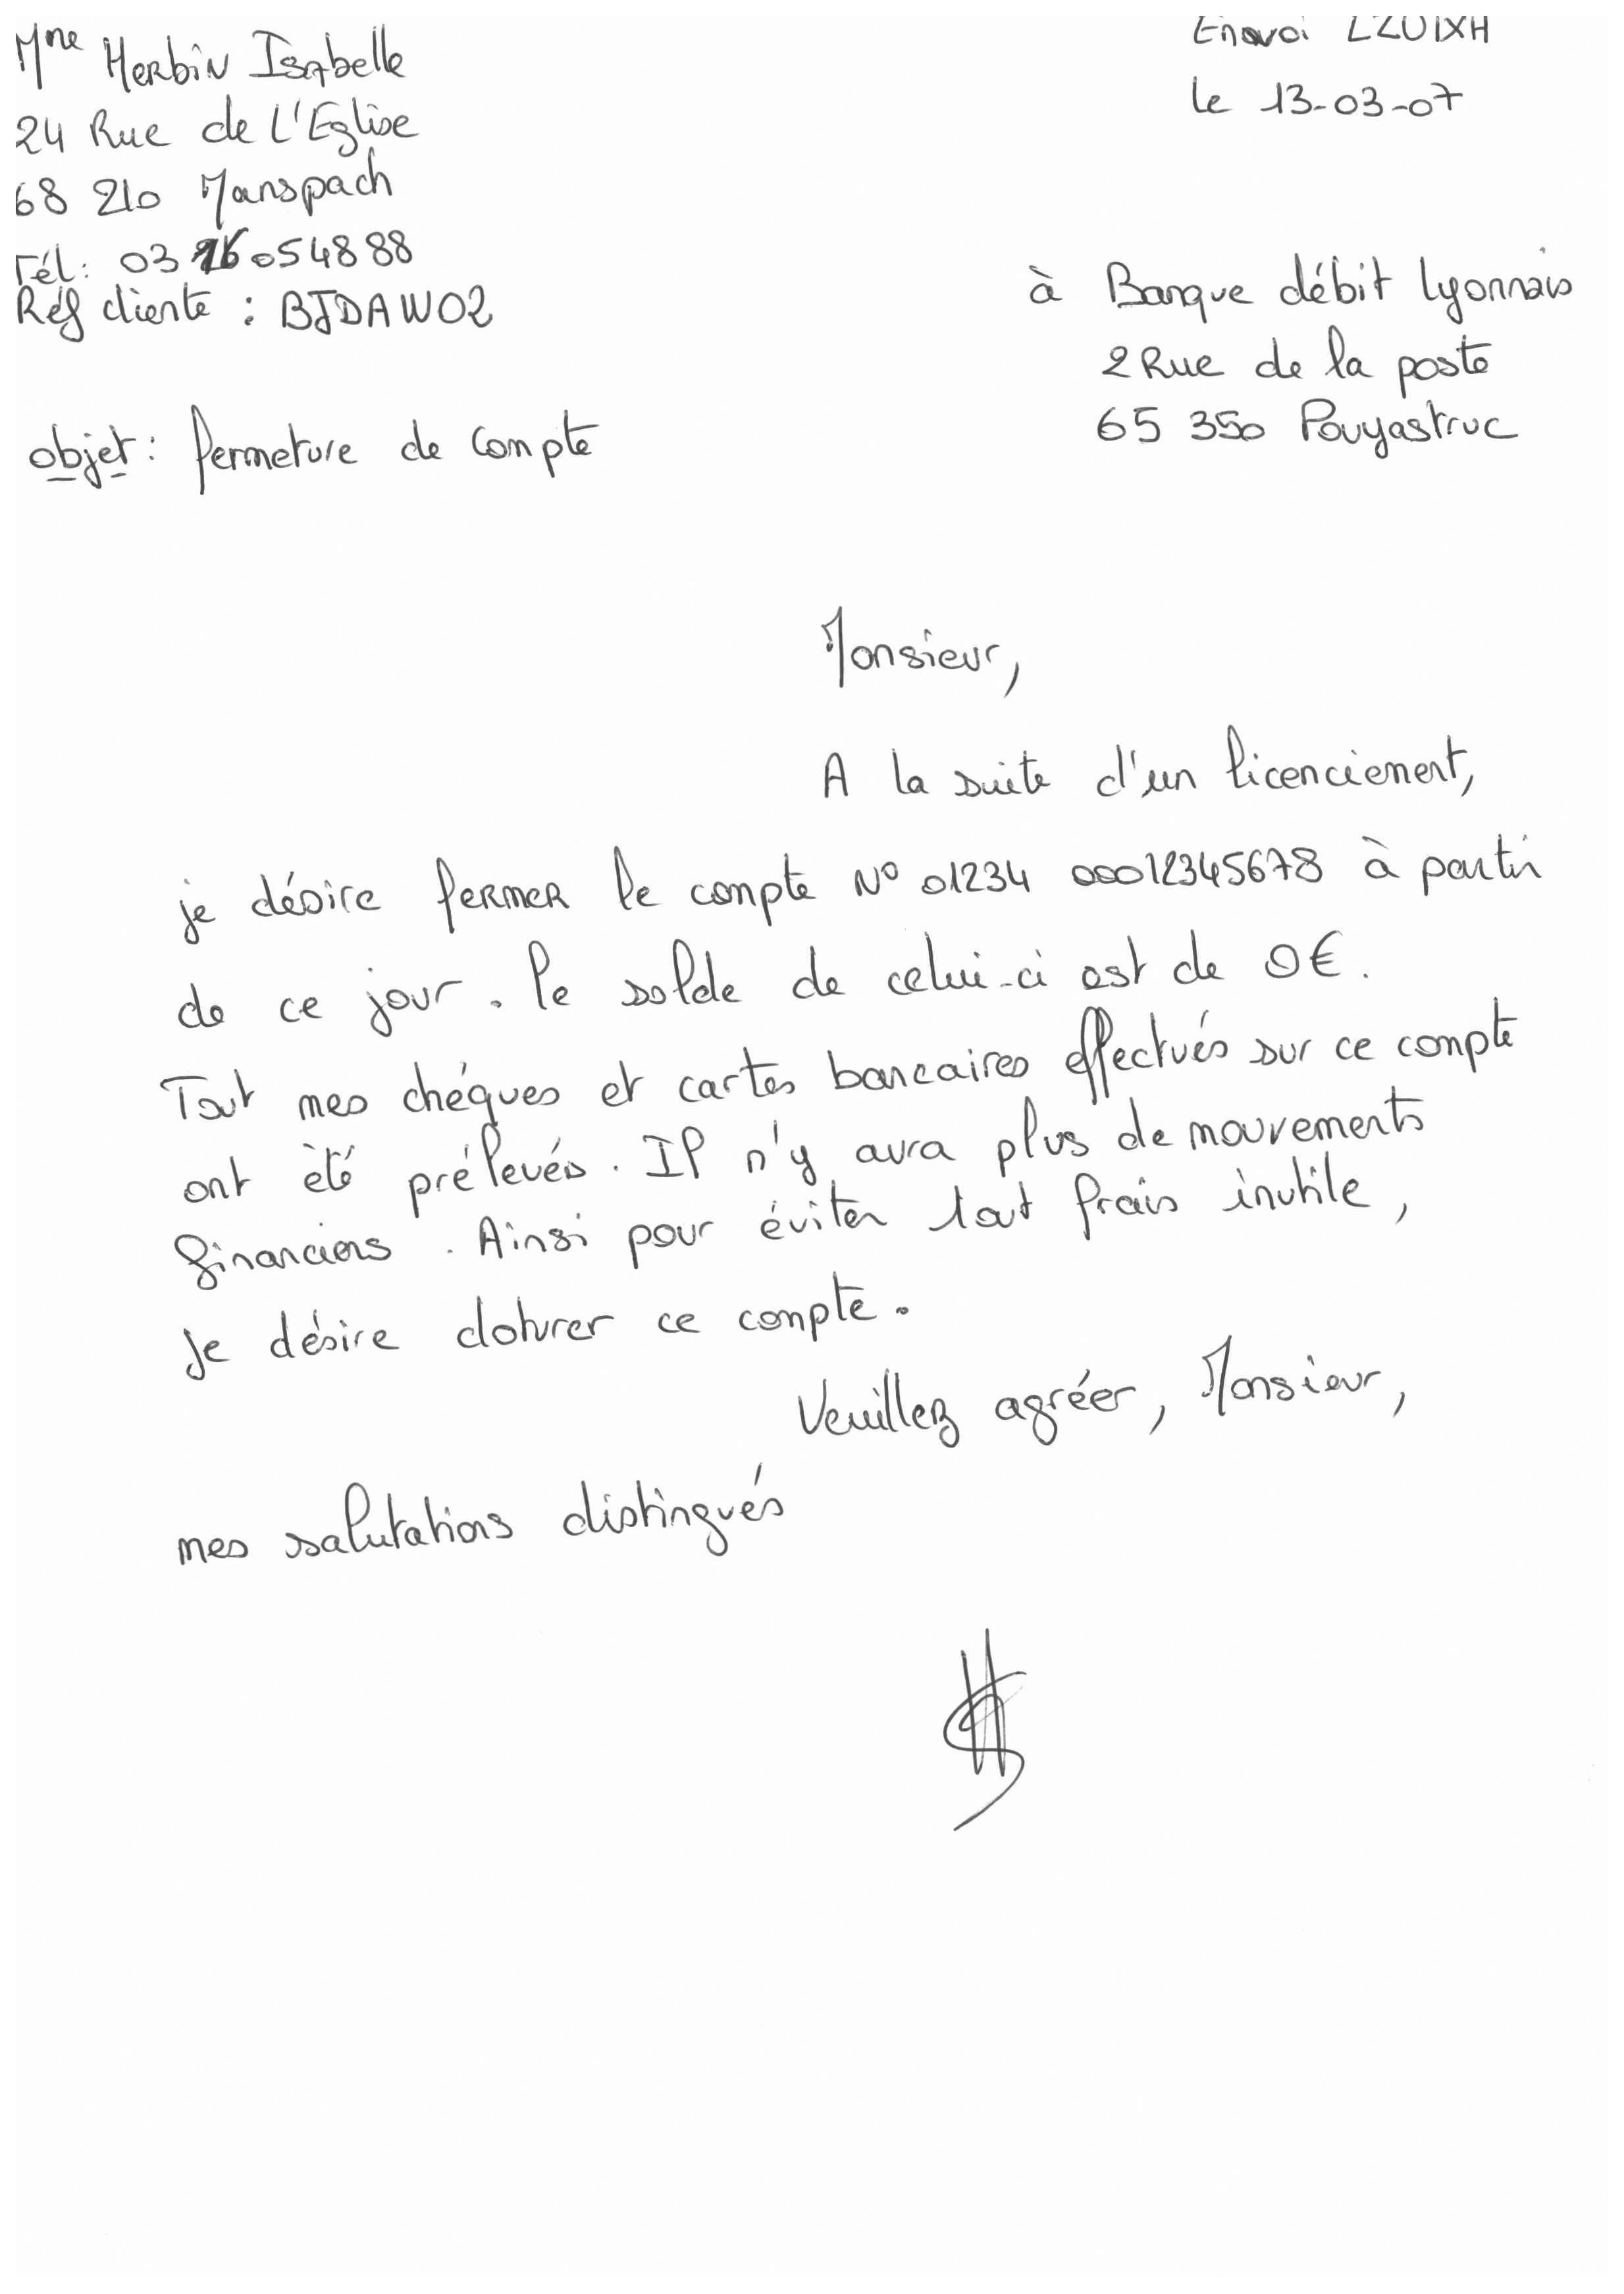 Mme Herbin Isabelle
24 Rue de L'Eglise
68 210 Manspach
Tél: 03 26 05 48 88
Réf cliente : BJDAW02
Envoi LZUIXH
le 13-03-07
à Banque débit lyonnais
2 Rue de la poste
65 350 Pouyastruc
objet : fermeture de compte
Monsieur,
A la suite d'un licenciement,
je désire fermer le compte N° 01234 00012345678 à partir
de ce jour. le solde de celui-ci est de 0€.
Tout mes chéques et cartes bancaires effectués sur ce compte
ont èté prélevés. Il n'y aura plus de mouvements
financiers. Ainsi pour éviter tout frais inutile,
je désire cloturer ce compte.
Veuillez agréer, Monsieur,
mes salutations distingués